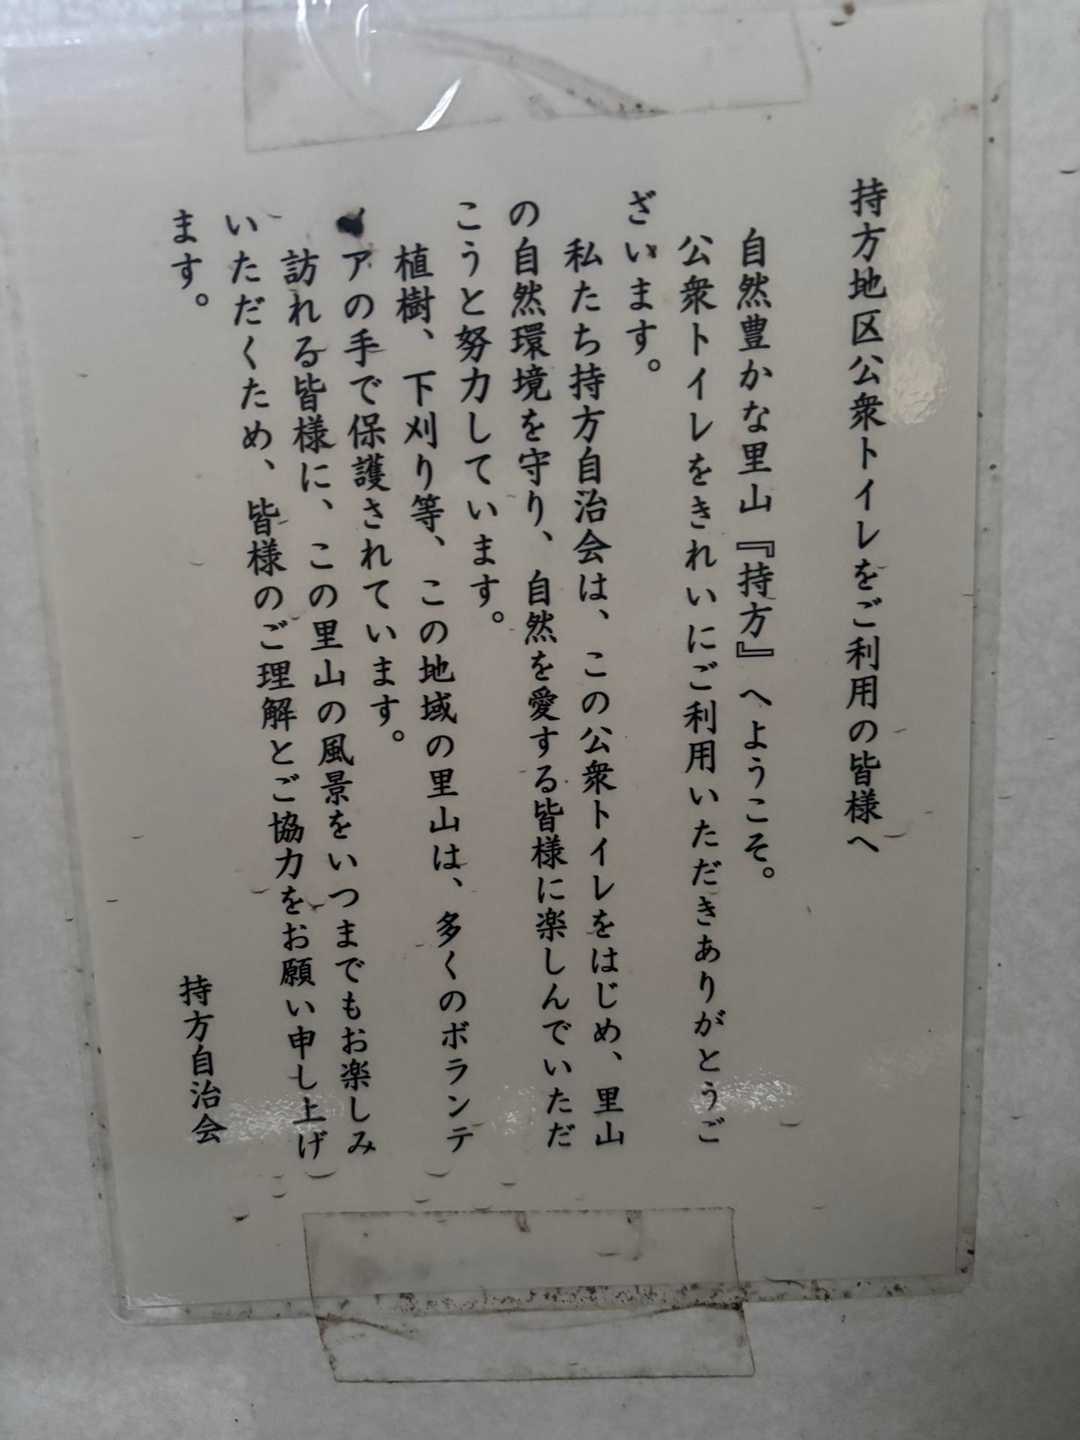 持方地区公衆トイレをご利用の皆様へ
自然豊かな里山『持方』へようこそ。
公衆トイレをきれいにご利用いただきありがとうご
ざいます。
私たち持方自治会は、この公衆トイレをはじめ、里山
の自然環境を守り、自然を愛する皆様に楽しんでいただ
こうと努力しています。
植樹、下刈り等、この地域の里山は、多くのボランテ
ィアの手で保護されています。
訪れる皆様に、この里山の風景をいつまでもお楽しみ
いただくため、皆様のご理解とご協力をお願い申し上げ
ます。
持方自治会